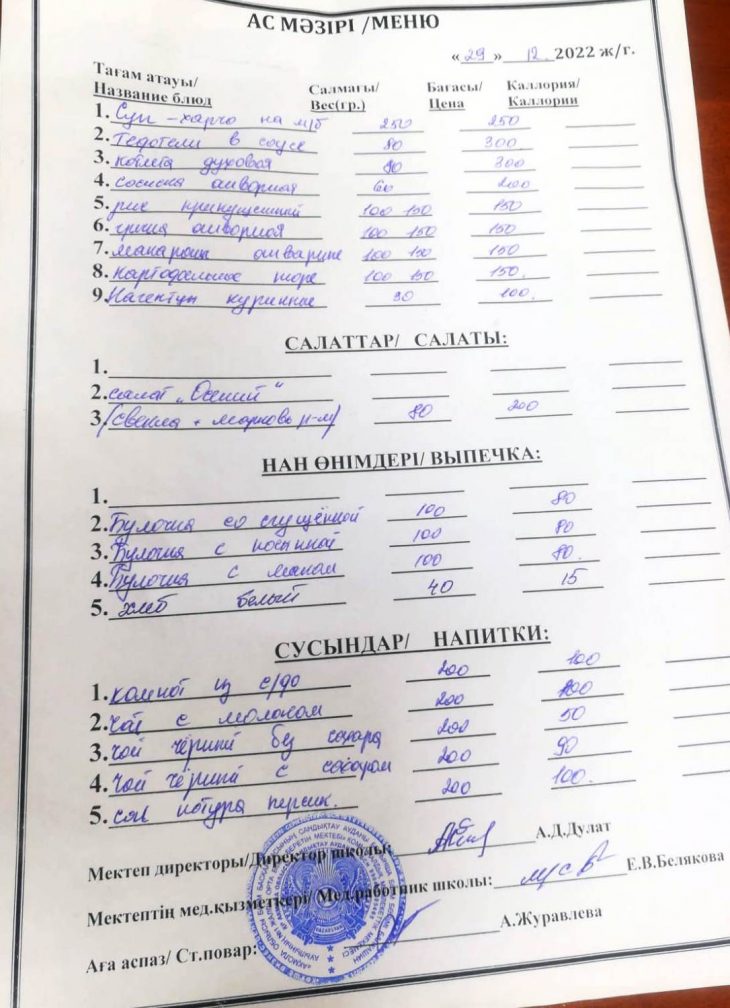 АС МӘЗІРІ /МЕНЮ
« 29 » 12. 2022 ж/г.
Тағам атауы/ Салмағы/ Бағасы/ Каллория/
Название блюд Вес(гр.) Цена Каллории
1. Суп - харчо на м/б 250 250
2. Тефтели в соусе 80 300
3. котлета духовая 80 300
4. сосиска отварная 60 200
5. рис припущенный 100 150 150
6. гречка отварная 100 150 150
7. макароны отварные 100 150 150
8. картофельное пюре 100 150 150.
9. Нагетсы куринные 90 100.
САЛАТТАР/ САЛАТЫ:
1.
2. салат „Осений“
3. (Свекла + морковь р-м) 80 200
НАН ӨНІМДЕРІ/ ВЫПЕЧКА:
1. 100 80
2. Булочка со сгущёнкой 100 80
3. Булочка с посыпкой 100 80.
4. Булочка с маком 40 15
5. хлеб белый
СУСЫНДАР/ НАПИТКИ:
1. компот из с/ф 200 100
2. Чай с молоком 200 100
3. чай чёрный без сахара 200 50
4. Чай чёрный с сахаром 200 90
5. сок натура персик. 200 100.
Мектеп директоры/Директор школы: А.Д.Дулат
Мектептің мед.қызметкері/ Мед.работник школы: Е.В.Белякова
Аға аспаз/ Ст.повар: А.Журавлева